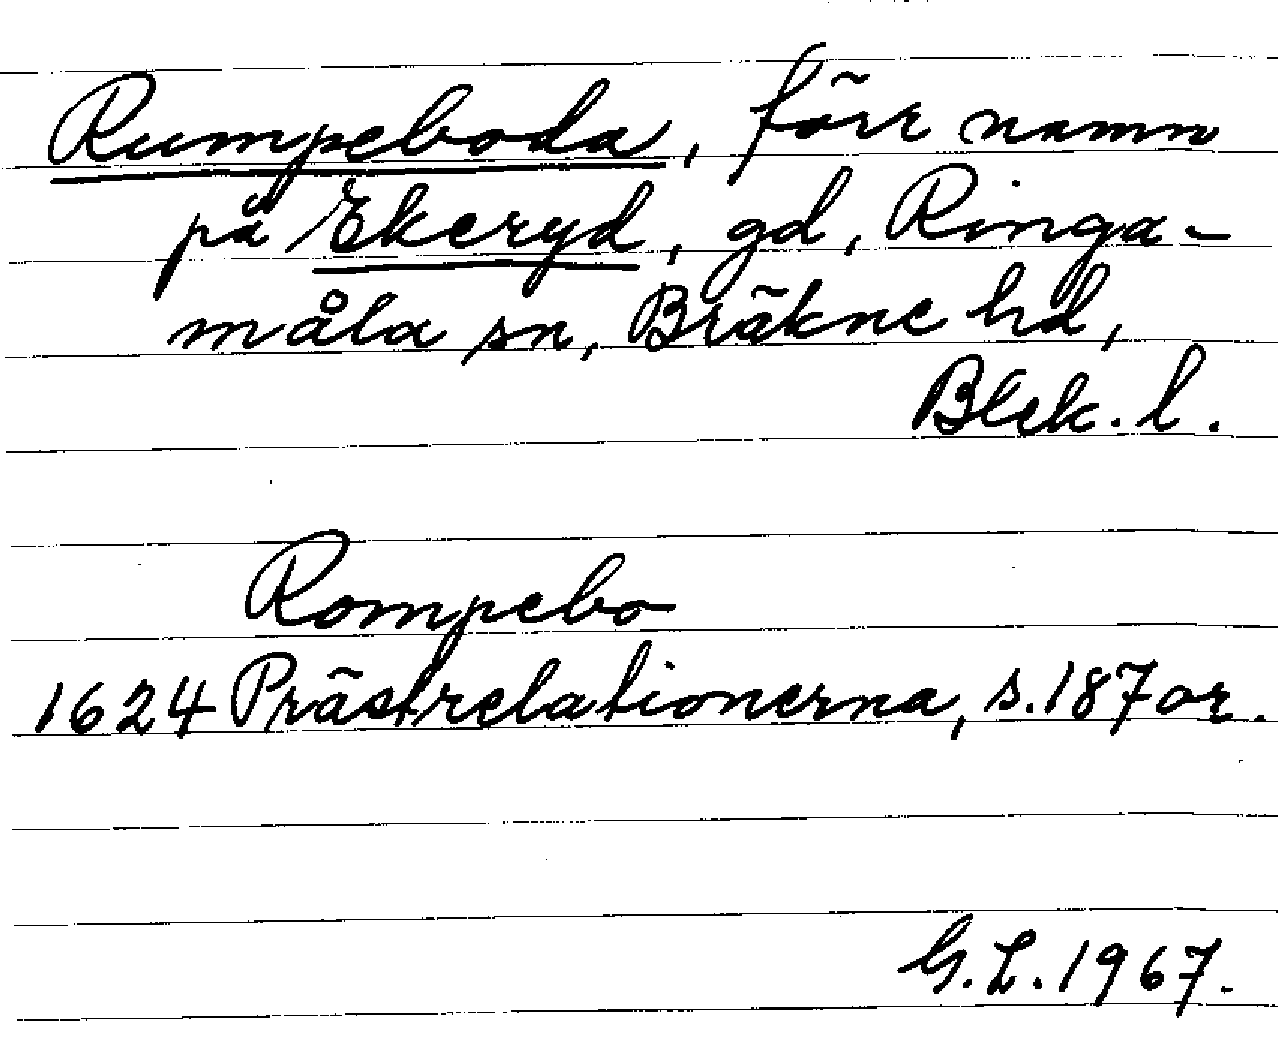 Rumpeboda, förr namn
på Ekeryd, gd, Ringa-
måla sn, Bräkne hd,
Blek. l.
Rompebo
1624 Prästrelationerna, s. 187 or.
G. L. 1967.